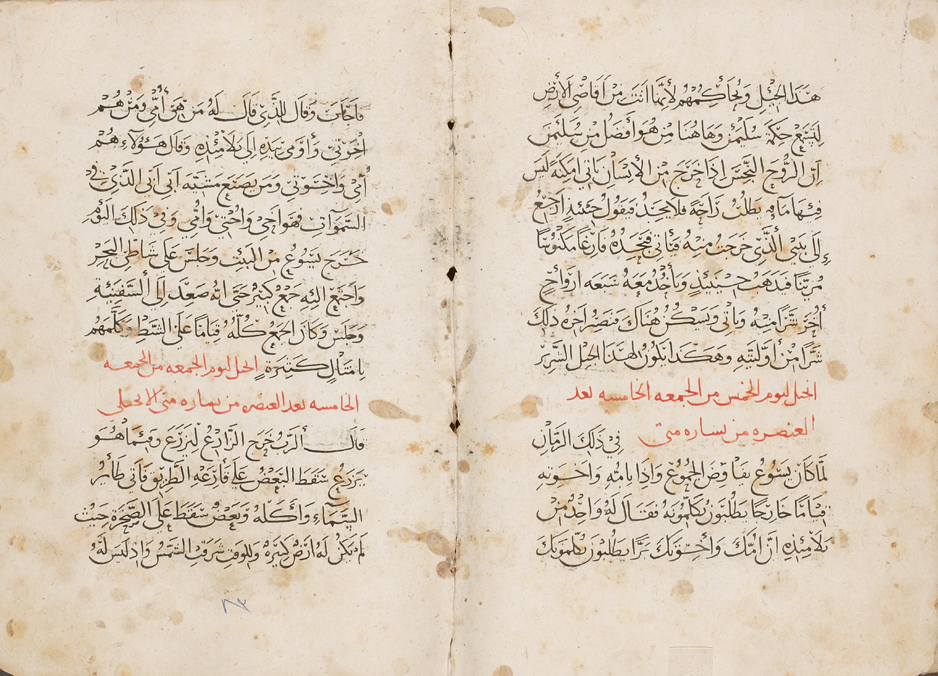 هذا الجيل ويحاكمهم لأنها اتت من اقاصي الأرض
لتسمع حكمة سليمن وهاهنا من هو افضل من سليمن
إن الروح النجس اذا خرج من الإنسان ياتي امكنة ليس
فيها ما يطلب راحة فلا يجد فيقول حينئذ ارجع
إلى بيتي الذي خرجت منه فيأتي فيجده فارغا مكنوسا
مزينا فيذهب حينيذ ويأخذ معه سبعه ارواح
أخر شرا منه وياتي ويسكن هناك وتصير اخرة ذلك
شرا من أوليته وهكذا يكون لهذا الجيل الشرير
انجيل ليوم الخميس من الجمعه الخامسه بعد
العنصره من بساره متى في ذلك الزمان
لما كان يسوع يفاوض الجموع واذا بامه واخوته
قياما خارجا يطلبون يكلمونه فقال له واحد من
تلاميذه ان امك وأخوتك برا يطلبون يكلمونك
فاجابه وقال للذي قال له من هي أمي ومن هم
اخوتي وأومى بيده إلى تلاميذه وقال هؤلاء هم
أمي واخوتي ومن يصنع مشية ابي الذي في
السموات فهو اخي واختي وأمي وفي ذلك اليوم
خرج يسوع من البيت وجلس على شاطي البحر
واجتمع اليه جمع كبير حتى انه صعد إلى السفينة
وجلس وكان الجمع كله قياما على الشط وكلمهم
بامثال كثيرة انجيل ليوم الجمعه من الجمعه
الخامسه بعد العنصره من بساره متى الانجيلي
قال الرب خرج الزارع ليزرع وفيما هو
يزرع سقط البعض على قارعه الطريق فأتى طائر
السماء وأكله وبعض سقط على الصخرة حيث
لم يكن له ارض كثيرة وللوقت شرقت الشمس واذ ليس له